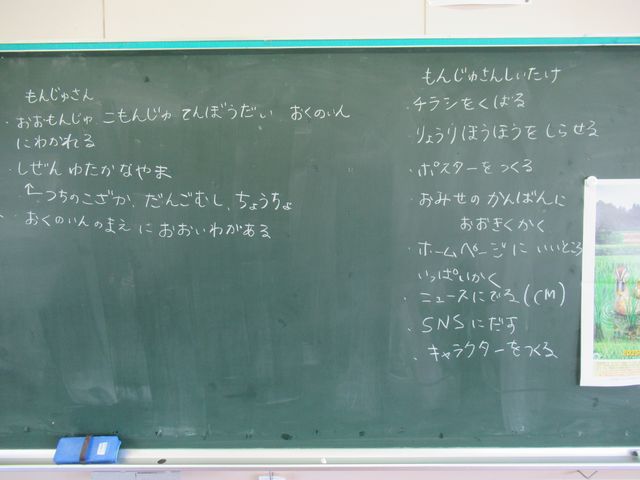 もんじゅさん
・おおもんじゅ こもんじゅ てんぼうだい おくのいん
にわかれる
・しぜん ゆたかなやま
←つちのこざか、だんごむし、ちょうちょ
・おくのいんのまえ に おおいわがある
もんじゅさんしいたけ
・チラシをくばる
・りょうりほうほうを しらせる
・ポスターをつくる
・おみせの かんばんに
おおきくかく
・ホームページに いいところ
いっぱいかく
・ニュースにでる(CM)
・SNSにだす
・キャラクターをつくる